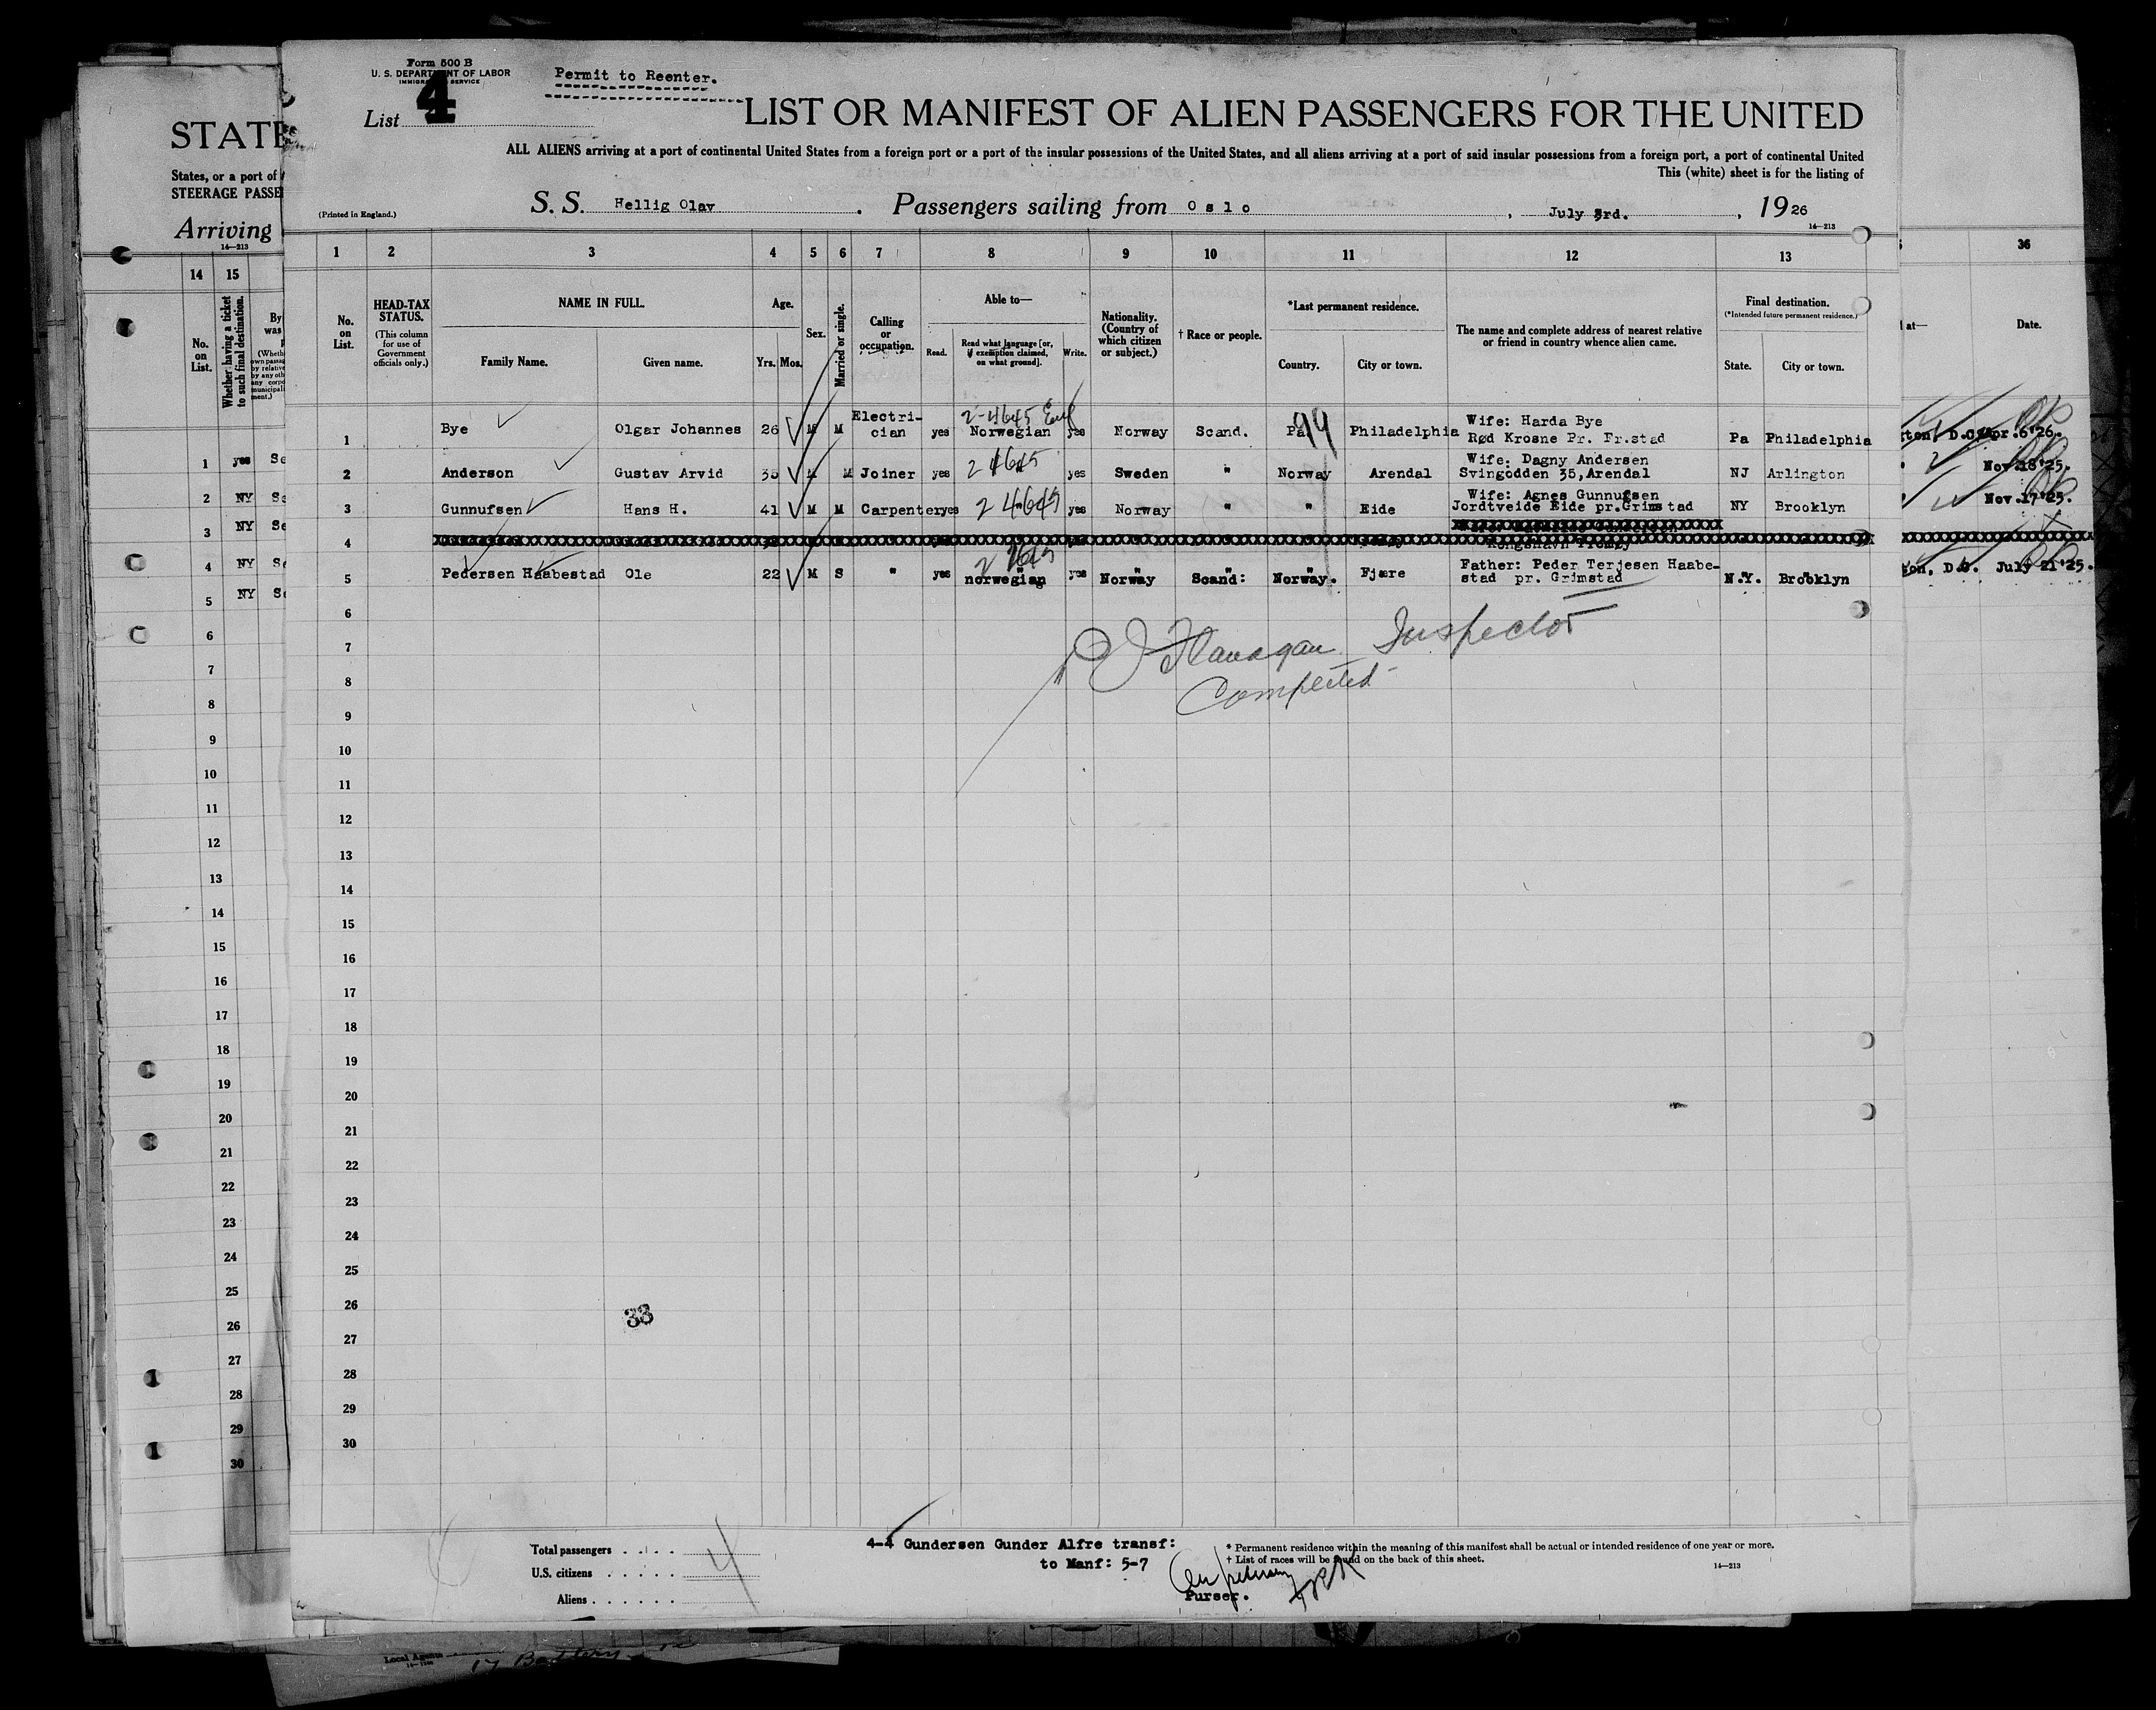 Form 500 B
U. S. DEPARTMENT OF LABOR
IMMIGRATION SERVICE
Permit to Reenter.
List 4
LIST OR MANIFEST OF ALIEN PASSENGERS FOR THE UNITED
ALL ALIENS arriving at a port of continental United States from a foreign port or a port of the insular possessions of the United States, and all aliens arriving at a port of said insular possessions from a foreign port, a port of continental United
This (white) sheet is for the listing of
(Printed in England.)
S. S. Hellig Olav . Passengers sailing from Oslo , July 3rd. , 1926
14—213
1 2 3 4 5 6 7 8 9 10 11 12 13
No. on List.
HEAD-TAX STATUS.
(This column for use of Government officials only.)
NAME IN FULL.
Family Name. Given name.
Age.
Yrs. Mos.
Sex.
Married or single.
Calling or occupation.
Able to—
Read. Read what language [or, if exemption claimed, on what ground]. Write.
Nationality. (Country of which citizen or subject.)
† Race or people.
*Last permanent residence.
Country. City or town.
The name and complete address of nearest relative or friend in country whence alien came.
Final destination.
(*Intended future permanent residence.)
State. City or town.
1 Bye Olgar Johannes 26 M M Electri-cian yes 2-4645 Norwegian yes Norway Scand. Pa 99 Philadelphia Wife: Harda Bye
Rød Krosne Pr. Fr.stad Pa Philadelphia
2 Anderson Gustav Arvid 35 M M Joiner yes 2 4645 yes Sweden " Norway Arendal Wife: Dagny Andersen
Svingodden 35,Arendal NJ Arlington
3 Gunnufsen Hans H. 41 M M Carpenter yes 2 4645 yes Norway " " Eide Wife: Agnes Gunnufsen
Jordtveide Eide pr.Grimstad NY Brooklyn
4
5 Pedersen Haabestad Ole 22 M S " yes norwegian yes Norway Scand: Norway. Fjære Father: Peder Terjesen Haabe-
stad pr. Grimstad N.Y. Brooklyn
6
7
8
9
10
11
12
13
14
15
16
17
18
19
20
21
22
23
24
25
26
27
28
29
30
P J Flanagan Inspector
Completed
33
Total passengers . . . .
U.S. citizens . . . . .
Aliens . . . . . .
4
4-4 Gundersen Gunder Alfre transf:
to Manf: 5-7
Purser.
* Permanent residence within the meaning of this manifest shall be actual or intended residence of one year or more.
† List of races will be found on the back of this sheet.
14—213
STATE
States, or a port of
STEERAGE PASSE
Arriving
14—213
14 15
No. on List.
Whether having a ticket to such final destination.
By
was
1 yes Se
2 NY Se
3 NY Se
4 NY Se
5 NY Se
6
7
8
9
10
11
12
13
14
15
16
17
18
19
20
21
22
23
24
25
26
27
28
29
30
36
at—
Date.
ton, D.C. Apr.6'26.
Nov.18'25.
Nov.17'25.
ton, D.C. July 21'25.
Local Agents
17 Battery